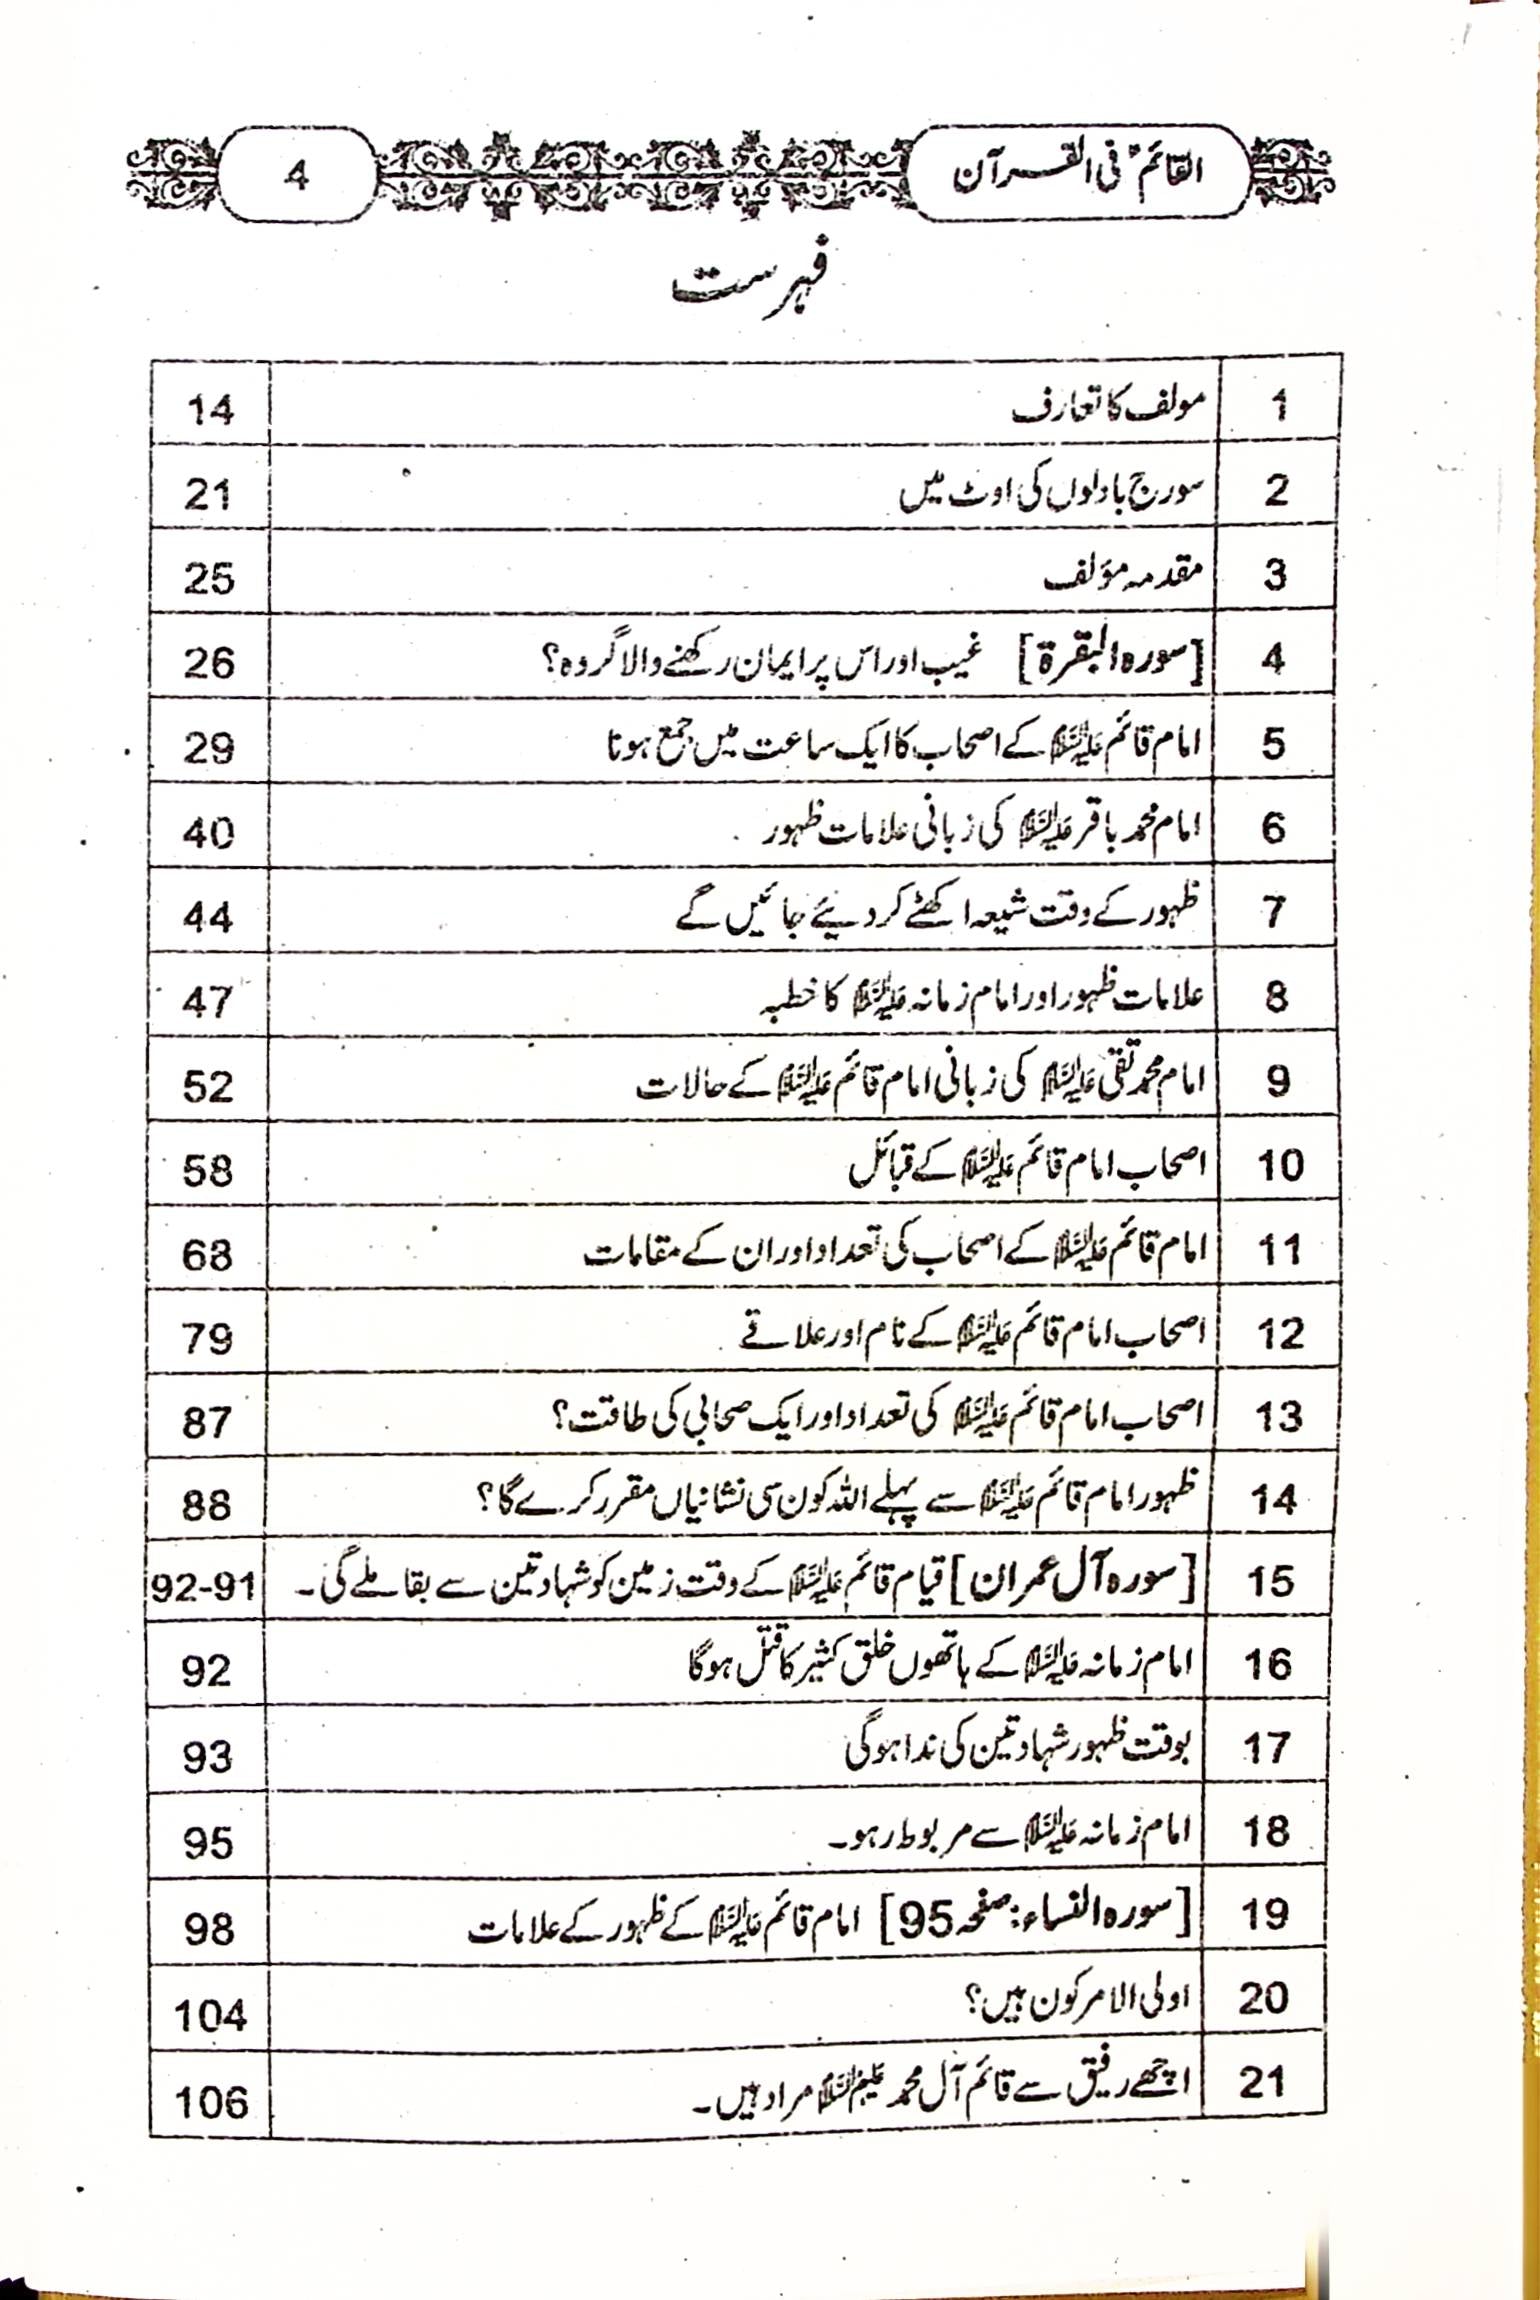 القائمؑ فی القرآن 4
فہرست
1 مولف کا تعارف 14
2 سورج بادلوں کی اوٹ میں 21
3 مقدمہ مؤلف 25
4 [سورہ البقرۃ] غیب اور اس پر ایمان رکھنے والا گروہ؟ 26
5 امام قائم علیہ السلام کے اصحاب کا ایک ساعت میں جمع ہونا 29
6 امام محمد باقر علیہ السلام کی زبانی علامات ظہور 40
7 ظہور کے وقت شیعہ اکھٹے کر دیئے جائیں گے 44
8 علامات ظہور اور امام زمانہ علیہ السلام کا خطبہ 47
9 امام محمد تقی علیہ السلام کی زبانی امام قائم علیہ السلام کے حالات 52
10 اصحاب امام قائم علیہ السلام کے قبائل 58
11 امام قائم علیہ السلام کے اصحاب کی تعداد اور ان کے مقامات 68
12 اصحاب امام قائم علیہ السلام کے نام اور علاقے 79
13 اصحاب امام قائم علیہ السلام کی تعداد اور ایک صحابی کی طاقت؟ 87
14 ظہور امام قائم علیہ السلام سے پہلے اللہ کون سی نشانیاں مقرر کرے گا؟ 88
15 [سورہ آل عمران] قیام قائم علیہ السلام کے وقت زمین کو شہادتین سے بقا ملے گی۔ 92-91
16 امام زمانہ علیہ السلام کے ہاتھوں خلق کثیر کا قتل ہوگا 92
17 بوقت ظہور شہادتین کی ندا ہوگی 93
18 امام زمانہ علیہ السلام سے مربوط رہو۔ 95
19 [سورہ النساء: صفحہ 95] امام قائم علیہ السلام کے ظہور کے علامات 98
20 اولی الامر کون ہیں؟ 104
21 اچھے رفیق سے قائم آل محمد علیہم السلام مراد ہیں۔ 106